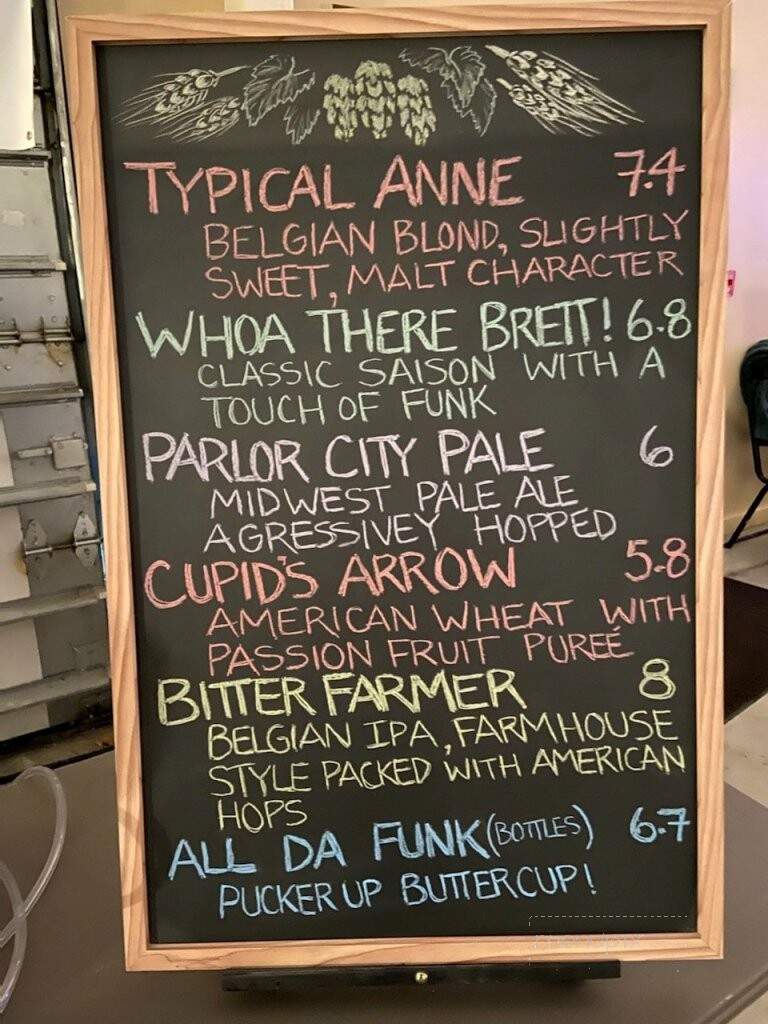 TYPICAL ANNE 7.4
BELGIAN BLOND, SLIGHTLY
SWEET, MALT CHARACTER
WHOA THERE BRETT! 6.8
CLASSIC SAISON WITH A
TOUCH OF FUNK
PARLOR CITY PALE 6
MIDWEST PALE ALE
AGRESSIVEY HOPPED
CUPID'S ARROW 5.8
AMERICAN WHEAT WITH
PASSION FRUIT PUREÉ
BITTER FARMER 8
BELGIAN IPA, FARMHOUSE
STYLE PACKED WITH AMERICAN
HOPS
ALL DA FUNK (BOTTLES) 6.7
PUCKER UP BUTTERCUP!